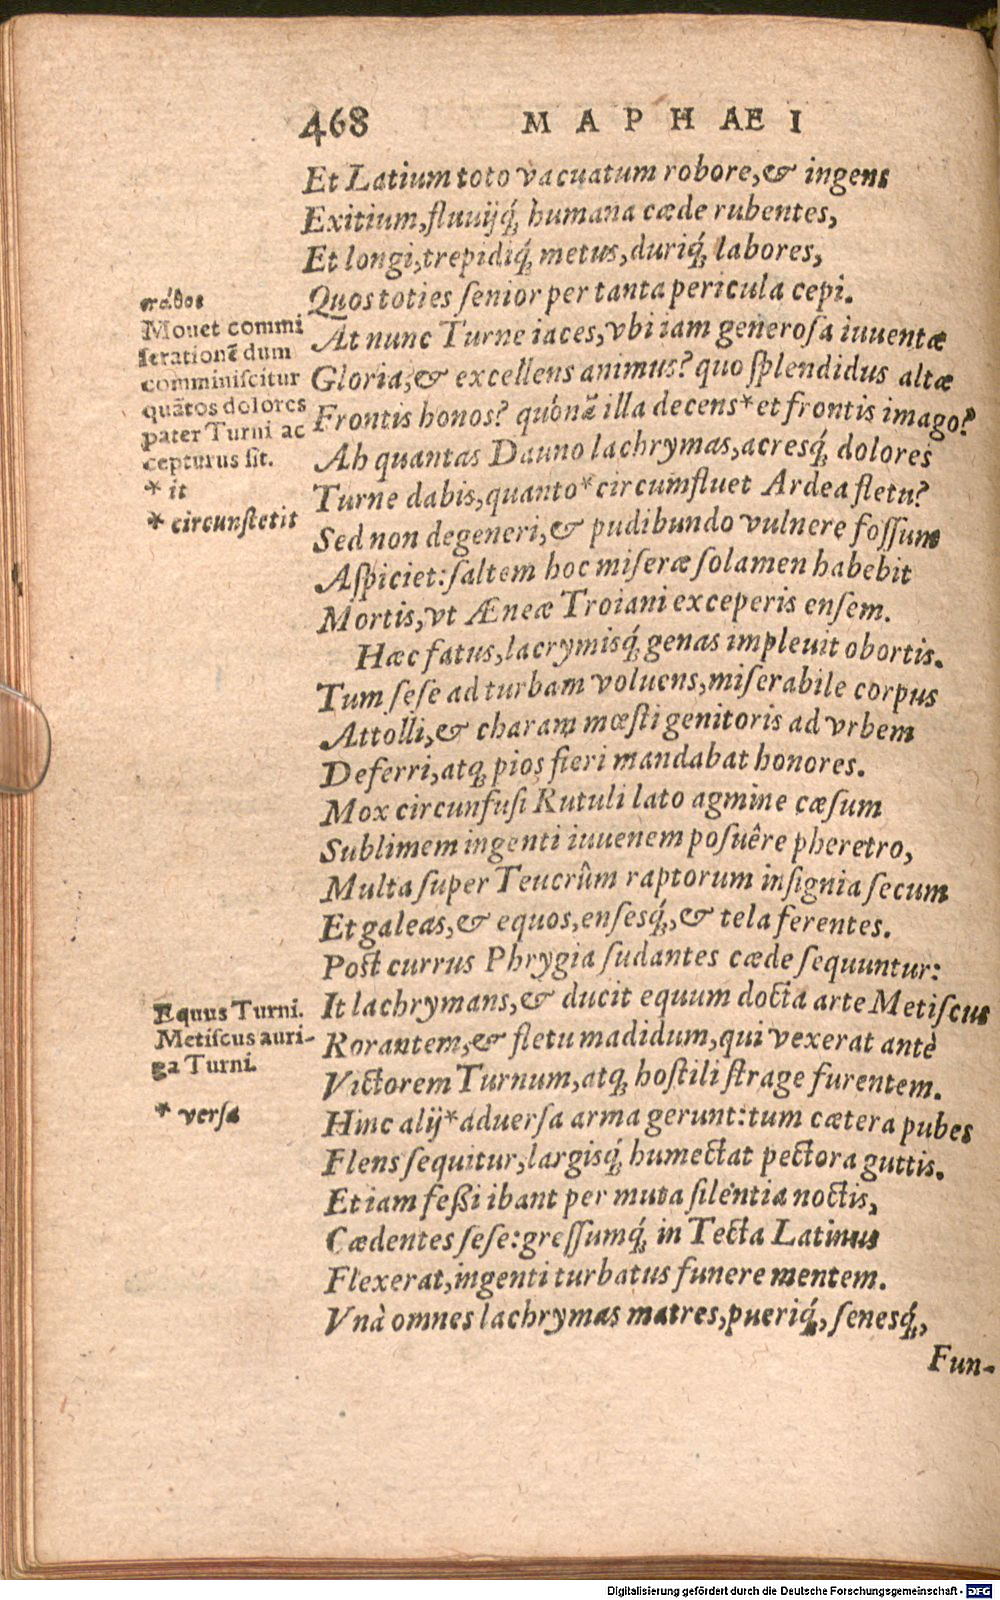 468 MAPHAEI
Et Latium toto vacuatum robore, & ingens
Exitium, fluuijq́; humana cæde rubentes,
Et longi, trepidiq́; metus, duriq́; labores,
Quos toties ſenior per tanta pericula cepi.
At nunc Turne iaces, vbi iam generoſa iuuentæ
Gloria, & excellens animus? quo ſplendidus altæ
Frontis honos? quónã illa decens* et frontis imago?
Ah quantas Dauno lachrymas, acresq́; dolores
Turne dabis, quanto* circumfluet Ardea fletu?
Sed non degeneri, & pudibundo vulnere foſſum
Aſpiciet: ſaltem hoc miſeræ ſolamen habebit
Mortis, vt Æneæ Troiani exceperis enſem.
Hæc fatus, lacrymisq́; genas impleuit obortis.
Tum ſeſe ad turbam voluens, miſerabile corpus
Attolli, & charam mœſti genitoris ad vrbem
Deferri, atq; pios fieri mandabat honores.
Mox circunfuſi Rutuli lato agmine cæſum
Sublimem ingenti iuuenem poſuêre pheretro,
Multa ſuper Teucrûm raptorum inſignia ſecum
Et galeas, & equos, enſesq́;, & tela ferentes.
Poſt currus Phrygia ſudantes cæde ſequuntur:
It lachrymans, & ducit equum docta arte Metiſcus
Rorantem, & fletu madidum, qui vexerat antè
Victorem Turnum, atq; hoſtili ſtrage furentem.
Hinc alij* aduerſa arma gerunt: tum cætera pubes
Flens ſequitur, largisq́; humectat pectora guttis.
Et iam feßi ibant per muta ſilentia noctis,
Cædentes ſeſe: greſſumq́; in Tecta Latinus
Flexerat, ingenti turbatus funere mentem.
Vnà omnes lachrymas matres, pueriq́;, ſenesq́;,
Fun-
πάθος
Mouet commi
ſerationẽ dum
comminiſcitur
quãtos dolores
pater Turni ac
cepturus ſit.
* it
* circunſtetit
Equus Turni.
Metiſcus auri-
ga Turni.
* verſa
Digitalisierung gefördert durch die Deutsche Forschungsgemeinschaft - DFG